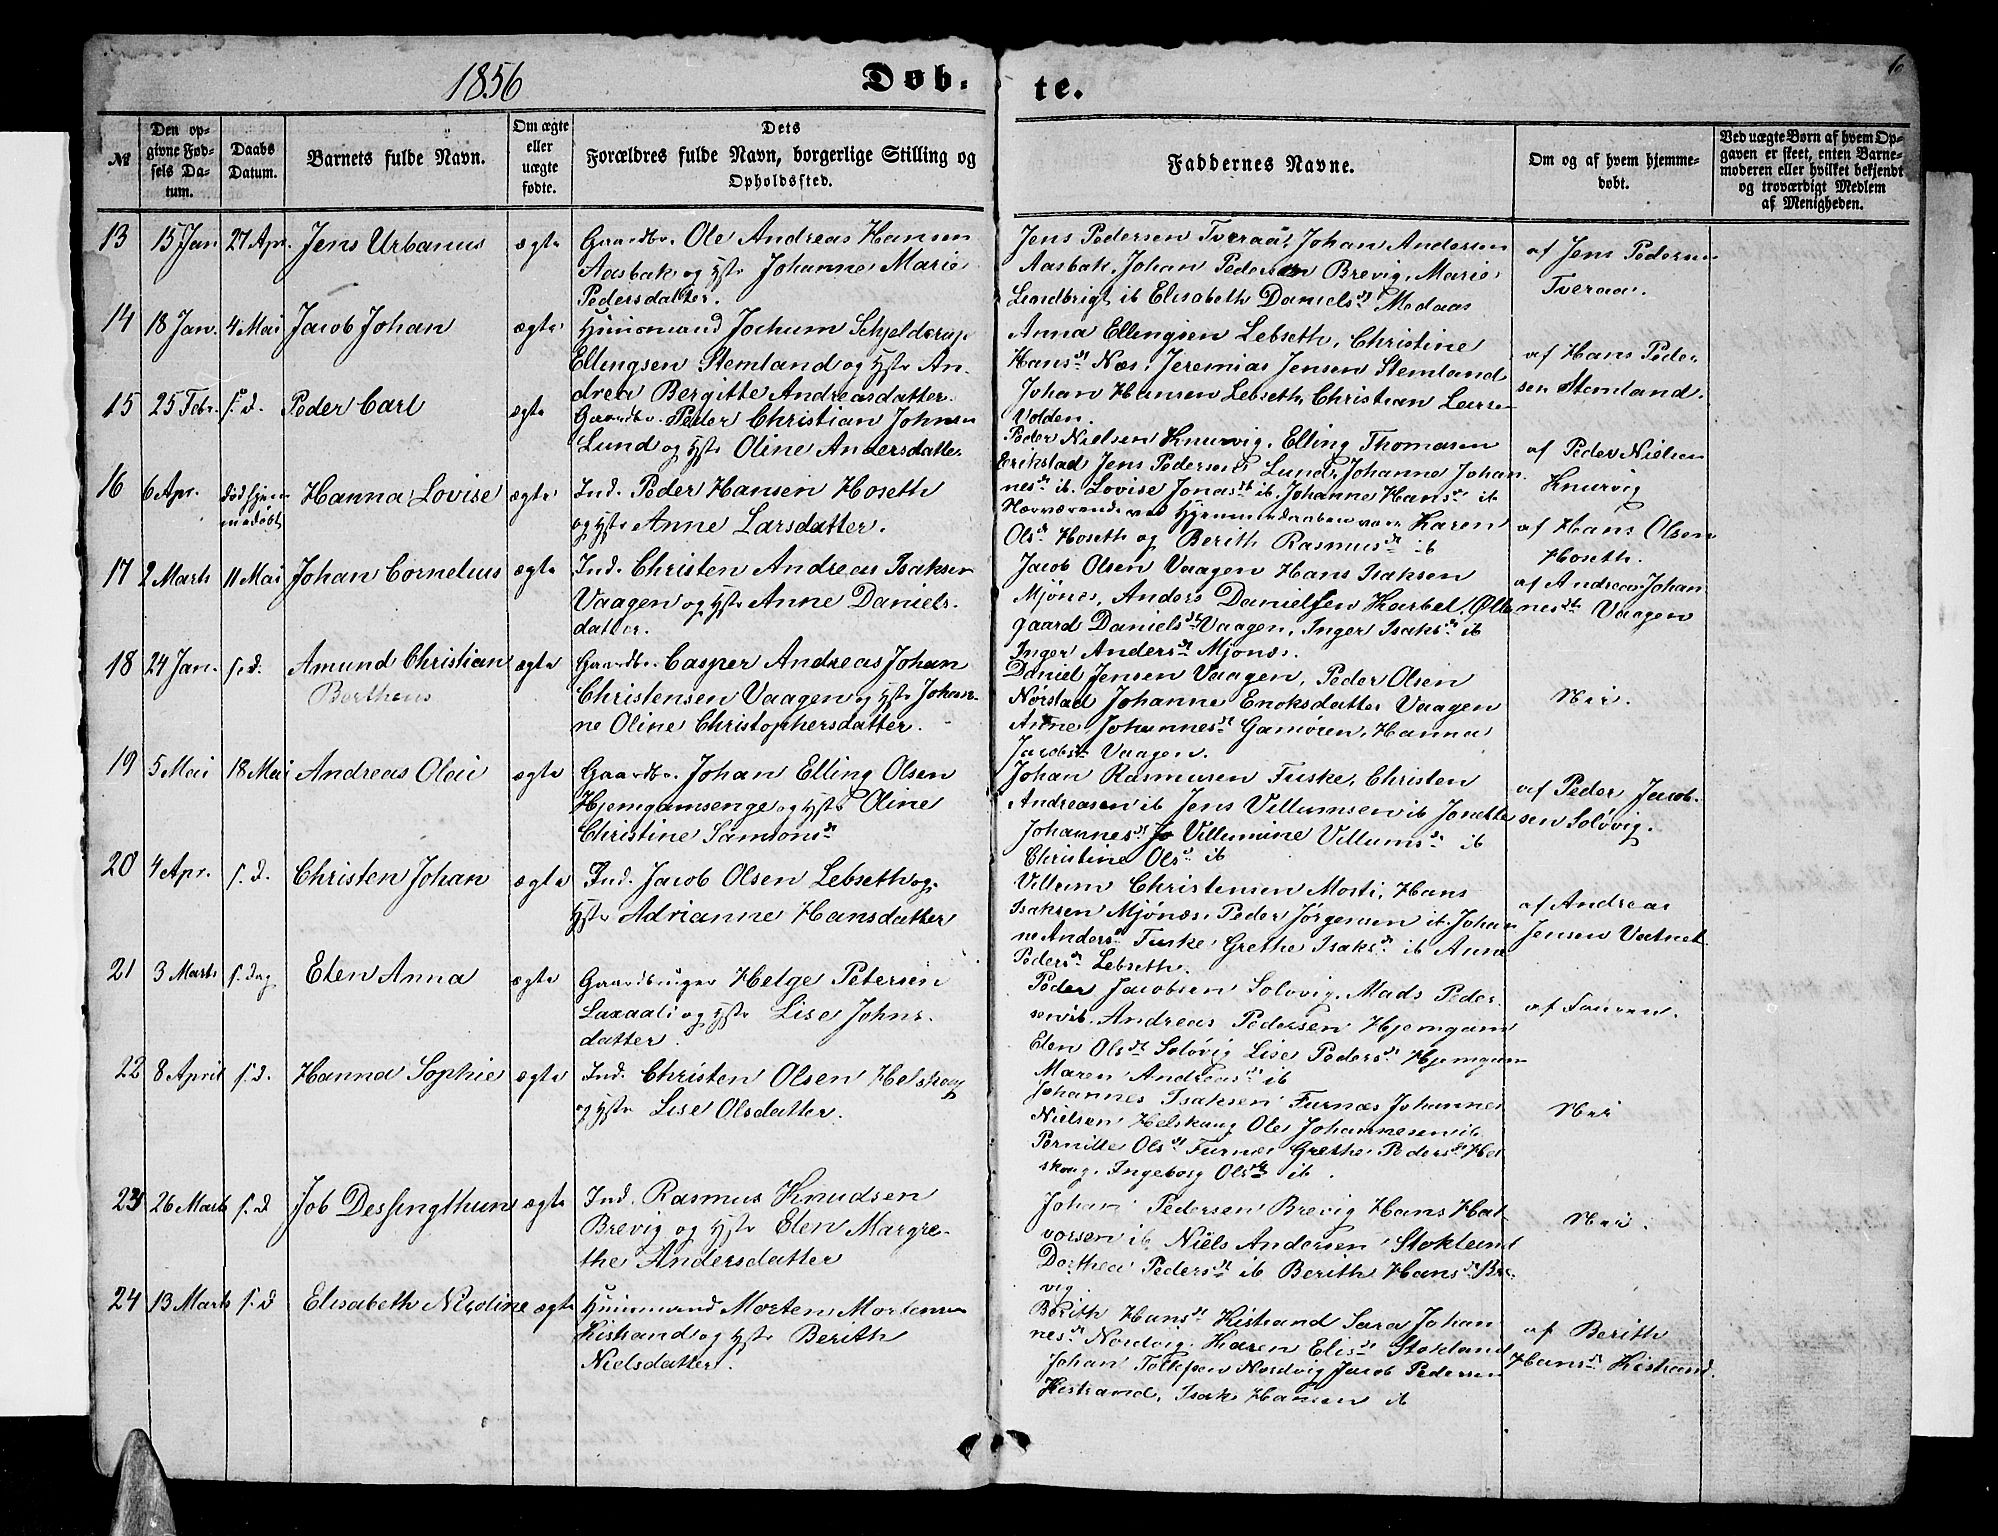 1856
Døb-
te.
6
№
Den op-
givne Fød-
sels Da-
tum.
Daabs
Datum.
Barnets fulde Navn.
Om ægte
eller
uægte
fødte.
Dets
Forældres fulde Navn, borgerlige Stilling og
Opholdssted.
Faddernes Navne.
Om og af hvem hjemme-
døbt.
Ved uægte Børn af hvem Op-
gaven er skeet, enten Barne-
moderen eller hvilket bekjendt
og troværdigt Medlem
af Menigheden.
13 15 Jan 27 Apr. Jens Urbanus ægte
Gaardbr. Ole Andreas Hansen
Aasbak og Hstr Johanne Marie
Pedersdatter.
Jens Pedersen Tveraa, Johan Andersen
Aasbak, Johan Pedersen Brevig, Marie
Lundbrigt ib Elisabeth Danielsdt Medaas
af Jens Pedersen
Tveraa.
14 18 Jan. 4 Mai Jacob Johan ægte
Huusmand Jochum Schjelderup
Ellingsen Stemland og Hstr An-
drea Bergitte Andreasdatter.
Anna Ellingsen Lebseth, Christine
Hansdt Næs, Jeremias Jensen Stemland
Johan Hansen Lebseth, Christian Larsen
Volden.
af Hans Peder
sen Stemland.
15 25 Febr. s. d. Peder Carl ægte
Gaardbr. Peder Christian Johnsen
Lund og Hstr Oline Andersdatter
Peder Nielsen Knurvig, Elling Thomasen
Erikstad Jens Pedersen Lund, Johanne Johan
nesdt ib. Lovise Jonasdt ib. Johanne Hansdt ib
af Peder Nielsen
Knurvig
16 6 Apr. død hjem
medøbt Hanna Lovise ægte
Ind. Peder Hansen Hoseth
og Hstr Anne Larsdatter.
Nærværende ved Hjemmedaaben vare Karen
Olsdt Hoseth og Berith Rasmusdt ib
af Hans Olsen
Hoseth.
17 2 Marts 11 Mai Johan Cornelius ægte
Ind. Christen Andreas Isaksen
Vaagen og Hstr Anne Daniels-
datter.
Jacob Olsen Vaagen Hans Isaksen
Mjønes, Anders Danielsen Karbel, Olle
gaard Danielsdt Vaagen, Inger Isaksdt ib
Inger Andersdt Mjønes.
af Andreas Johan
nesdt Vaagen
18 24 Jan. s. d. Amund Christian
Bertheus ægte
Gaardbr. Casper Andreas Johan
Christensen Vaagen og Hstr Johan-
ne Oline Christophersdatter.
Daniel Jensen Vaagen, Peder Olsen
Nørstad Johanne Enoksdatter Vaagen
Anne Johannesdt Gamøren, Hanna
Jacobsdt Vaagen.
Nei.
19 5 Mai 18 Mai Andreas Olai ægte
Gaardbr. Johan Elling Olsen
Hjemgamsenge og Hstr Oline
Christine Samsonsdt
Johan Rasmusen Fuske, Christen
Andreasen ib Jens Villumsen ib Jonette
Johannesdt Villumine Villumsdt ib
Christine Olsdt ib
af Peder Jacob-
sen Soløvig.
20 4 Apr. s. d. Christen Johan ægte
Ind. Jacob Olsen Lebseth og
Hstr Adrianne Hansdatter
Villum Christensen Mosti, Hans
Isaksen Mjønes, Peder Jørgensen ib. Johan
ne Andersdt Fuske Grethe Isaksdt ib Anne
Pedersdt Lebseth.
af Andreas
Jensen Vatnet
21 3 Marts s. dag Elen Anna ægte
Gaardbruger Helge Petersen
Laxaali og Hstr Lise Johns-
datter.
Peder Jacobsen Soløvig, Mads Peder-
sen ib. Andreas Pedersen Hjemgam
Elen Olsdt Soløvig Lise Pedersdt Hjemgam
Maren Andreasdt ib
af Faderen.
22 8 April s. d. Hanna Sophie ægte
Ind. Christen Olsen Helskoug
og Hstr Lise Olsdatter.
Johannes Isaksen Furnæs Johannes
Nielsen Helskoug Ole Johannesen ib.
Pernille Olsdt Furnæs Grethe Pedersdt Hel
skoug, Ingeborg Olsdt ib.
Nei
23 26 Marts s. d Job Dessingthun ægte
Ind. Rasmus Knudsen
Brevig og Hstr Elen Margre-
the Andersdatter
Johan Pedersen Brevig Hans Hal
vorsen ib. Niels Andersen Stoklund
Dorthea Pedersdt ib Berith Hansdt Bre-
vig.
Nei.
24 13 Marts s. d Elisabeth Nicoline ægte
Huusmand Morten Mortensen
Kistrand og Hstr Berith
Nielsdatter.
Berith Hansdt Kistrand Sara Johan
nesdt Nordvig, Karen Elisdt Stokland
Johan Tollefsen Nordvig Jacob Pedersen
Kistrand, Isak Hansen ib
af Berith
Hansdt Kistrand.